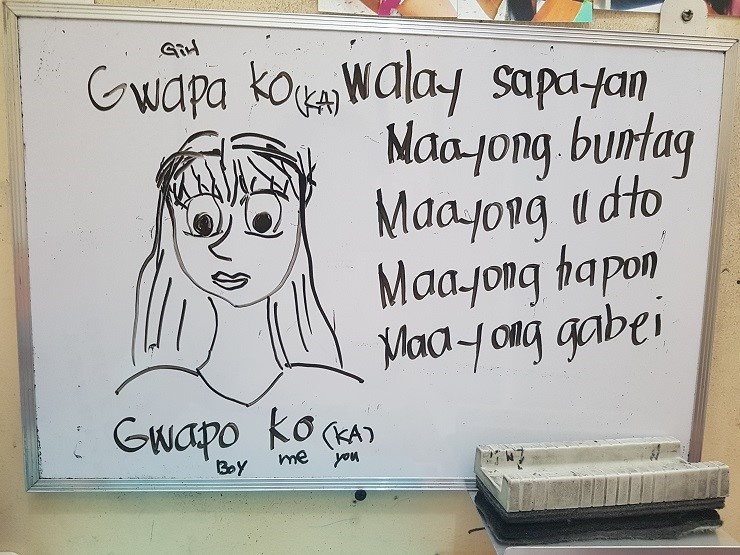 Girl
Gwapa ko (KA) walay sapayan
Maayong buntag
Maayong udto
Maayong hapon
Maayong gabei
Gwapo ko (KA)
Boy me you